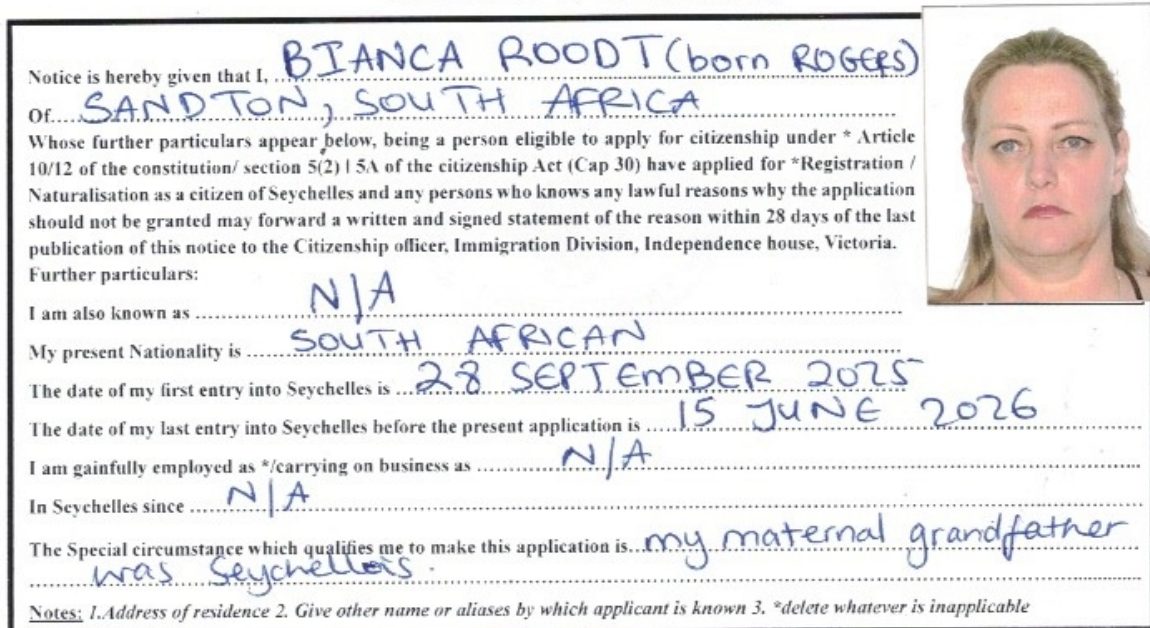 Notice is hereby given that I, BIANCA ROODT (born ROGERS)
Of SANDTON, SOUTH AFRICA
Whose further particulars appear below, being a person eligible to apply for citizenship under * Article
10/12 of the constitution/ section 5(2) | 5A of the citizenship Act (Cap 30) have applied for *Registration /
Naturalisation as a citizen of Seychelles and any persons who knows any lawful reasons why the application
should not be granted may forward a written and signed statement of the reason within 28 days of the last
publication of this notice to the Citizenship officer, Immigration Division, Independence house, Victoria.
Further particulars:
I am also known as N/A
My present Nationality is SOUTH AFRICAN
The date of my first entry into Seychelles is 28 SEPTEMBER 2025
The date of my last entry into Seychelles before the present application is 15 JUNE 2026
I am gainfully employed as */carrying on business as N/A
In Seychelles since N/A
The Special circumstance which qualifies me to make this application is my maternal grandfather
was Seychellois.
Notes: 1.Address of residence 2. Give other name or aliases by which applicant is known 3. *delete whatever is inapplicable